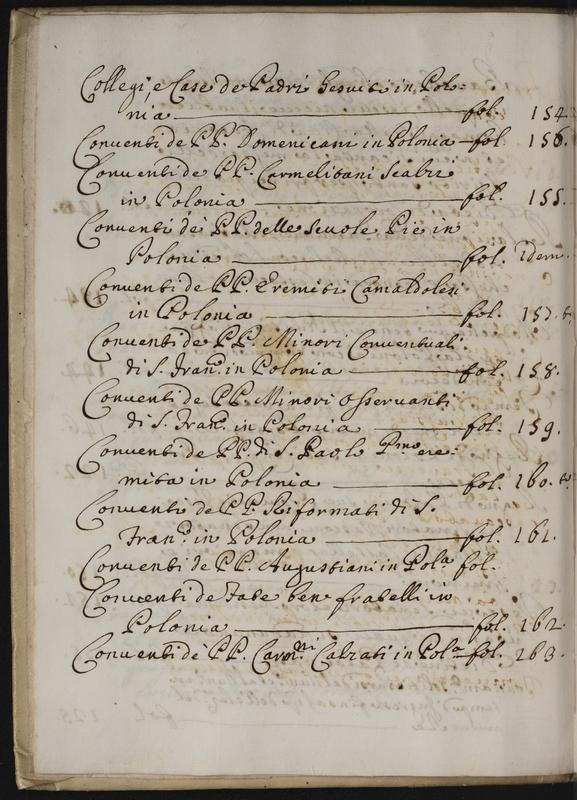 Collegi, e Case de Padri Gesuiti in Polo-
nia fol. 154.
Conventi de PP. Domenicani in Polonia fol. 156.
Conventi de PP. Carmelitani Scalzi
in Polonia fol. 155.
Conventi dei PP. delle Scuole Pie in
Polonia fol. idem.
Conventi de PP. Eremiti Camaldolesi
in Polonia fol. 157. t.
Conventi de PP. Minori Conventuali
di S. Fran.o in Polonia fol. 158.
Conventi de PP. Minori Osservanti
di S. Fran.o in Polonia fol. 159.
Conventi de PP. di S. Paolo Pmo ere-
mita in Polonia fol. 160. t.
Conventi de PP. Riformati di S.
Fran.o in Polonia fol. 161.
Conventi de PP. Augustiani in Pola fol.
Conventi de Fate ben fratelli in
Polonia fol. 162.
Conventi de PP. Carm.ni Calzati in Pola fol. 163.